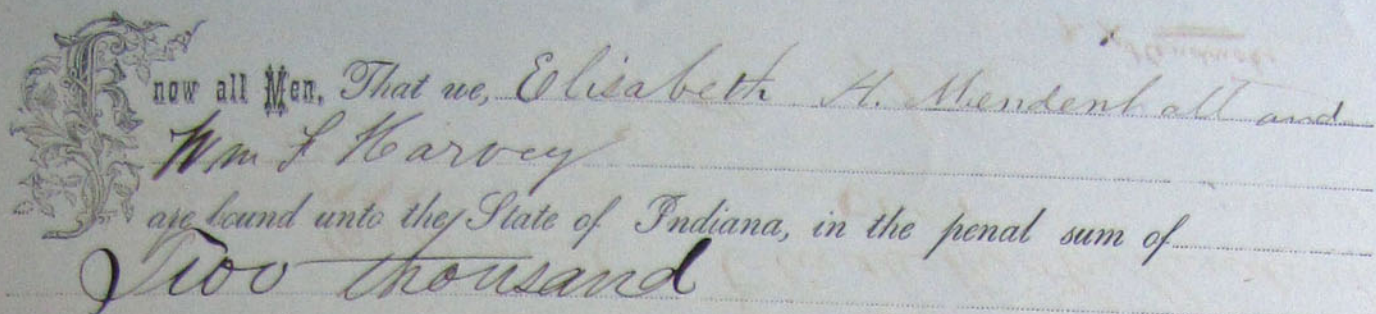 Know all Men, That we, Elisabeth H. Mendenhall and
Wm F Harvey
are bound unto the State of Indiana, in the penal sum of
Two thousand